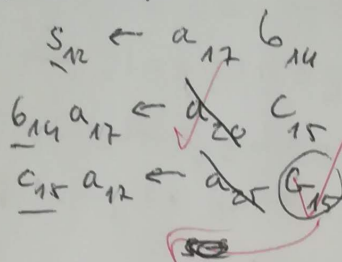 S12 ← a17 b14
b14 a17 ← a20 C15
C15 a17 ← a25 G15